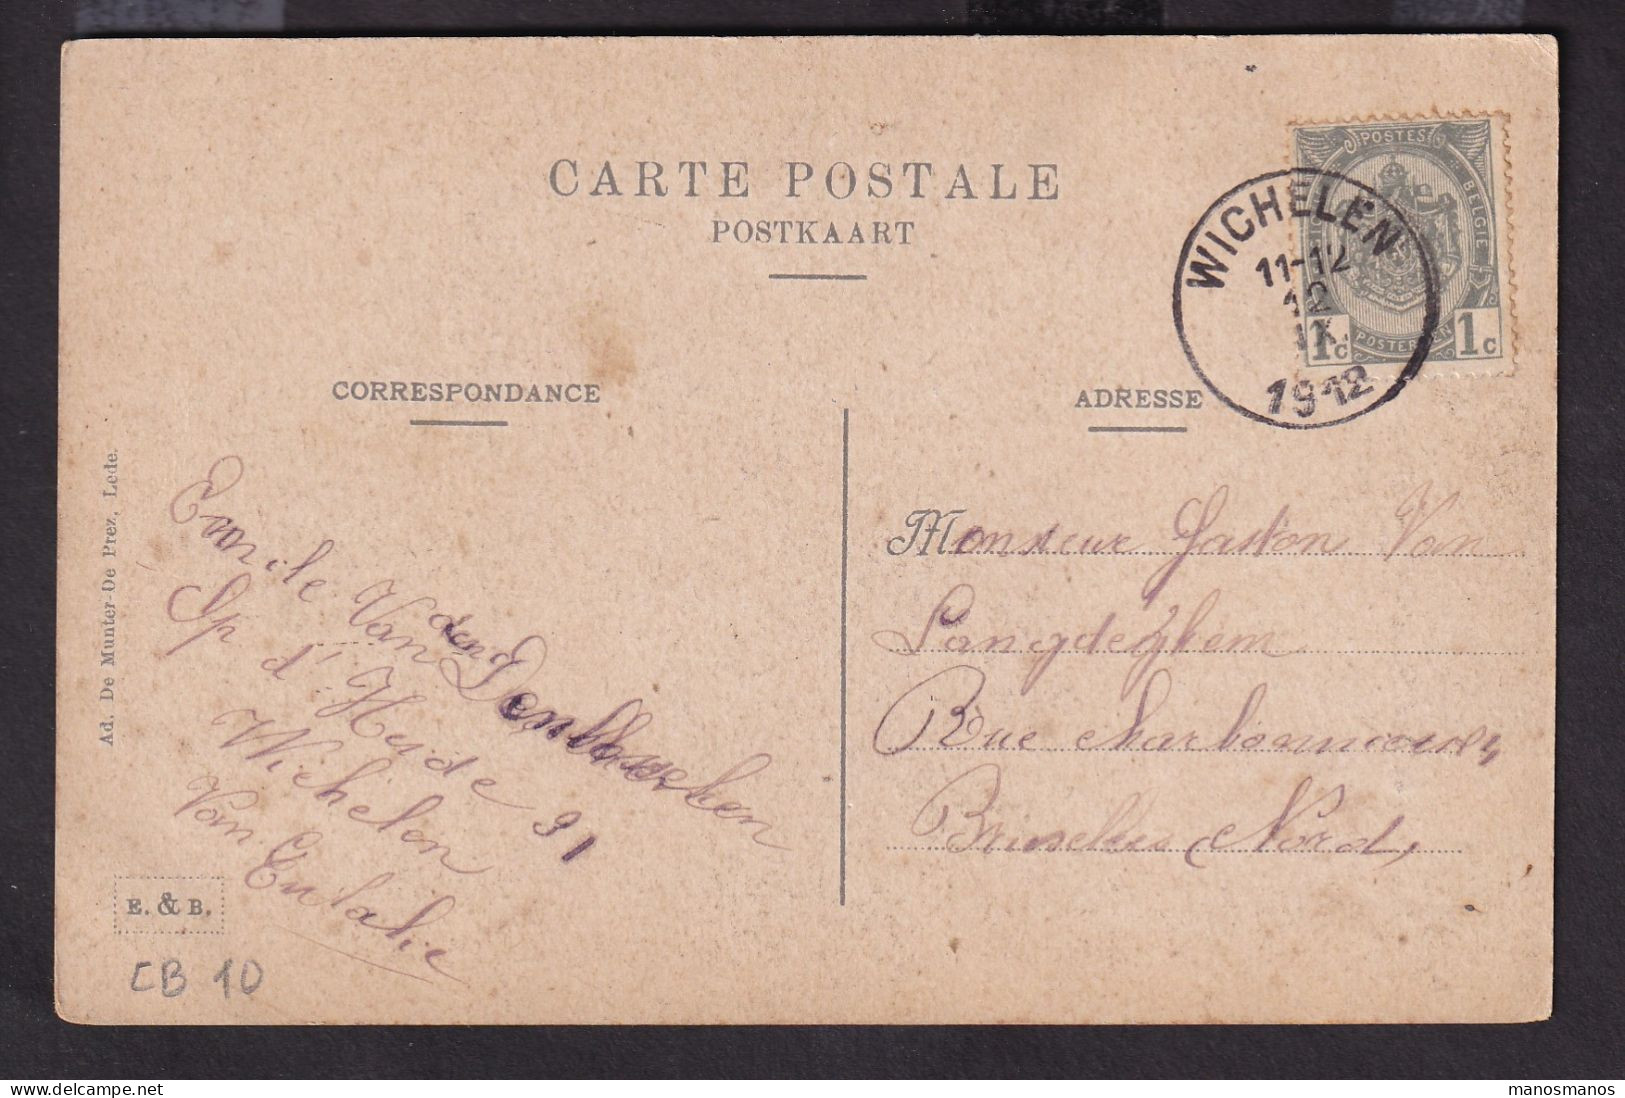 CARTE POSTALE
POSTKAART
POSTES
BELGIQUE BELGIE
POSTERIJEN
1c 1c
WICHELEN
11-12
12
IX
1912
CORRESPONDANCE
ADRESSE
Ad. De Munter-De Prez, Lede.
Emile Van den
Sp d'Heyde 91
Wichelen
Van Eulalie
Monsieur Gaston Van
Langdeghem
Rue
Bruxelles (Nord,
E. & B.
CB 10
delcampe.net
manosmanos